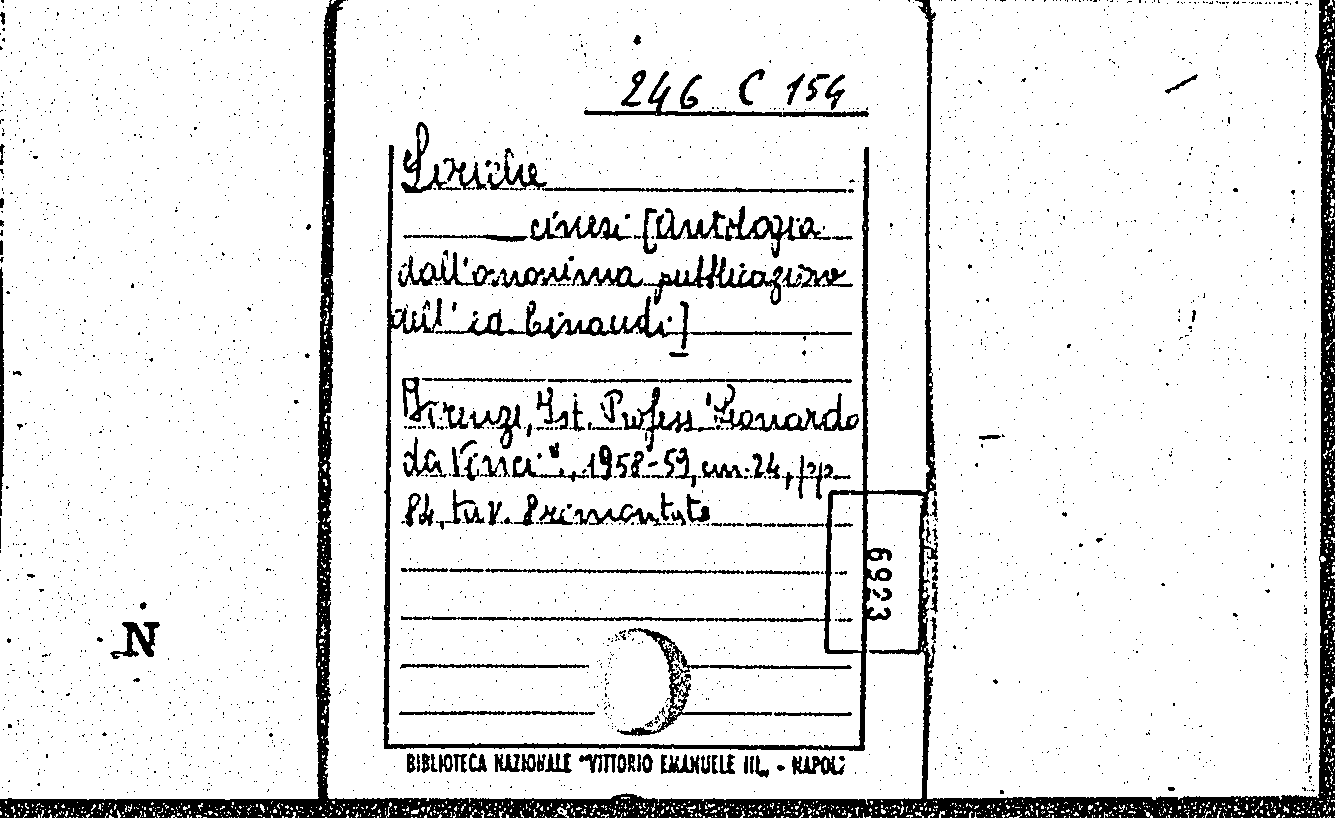 246 C 154
Liriche
cinesi [Antologia
dall'anonima pubblicazione
dell' ed. Einaudi]
Firenze, Ist. Profess. "Leonardo
da Vinci", 1958-59, cm. 24, pp.
84, tav. 8 rimontate
6923
N
BIBLIOTECA NAZIONALE "VITTORIO EMANUELE III„ - NAPOLI